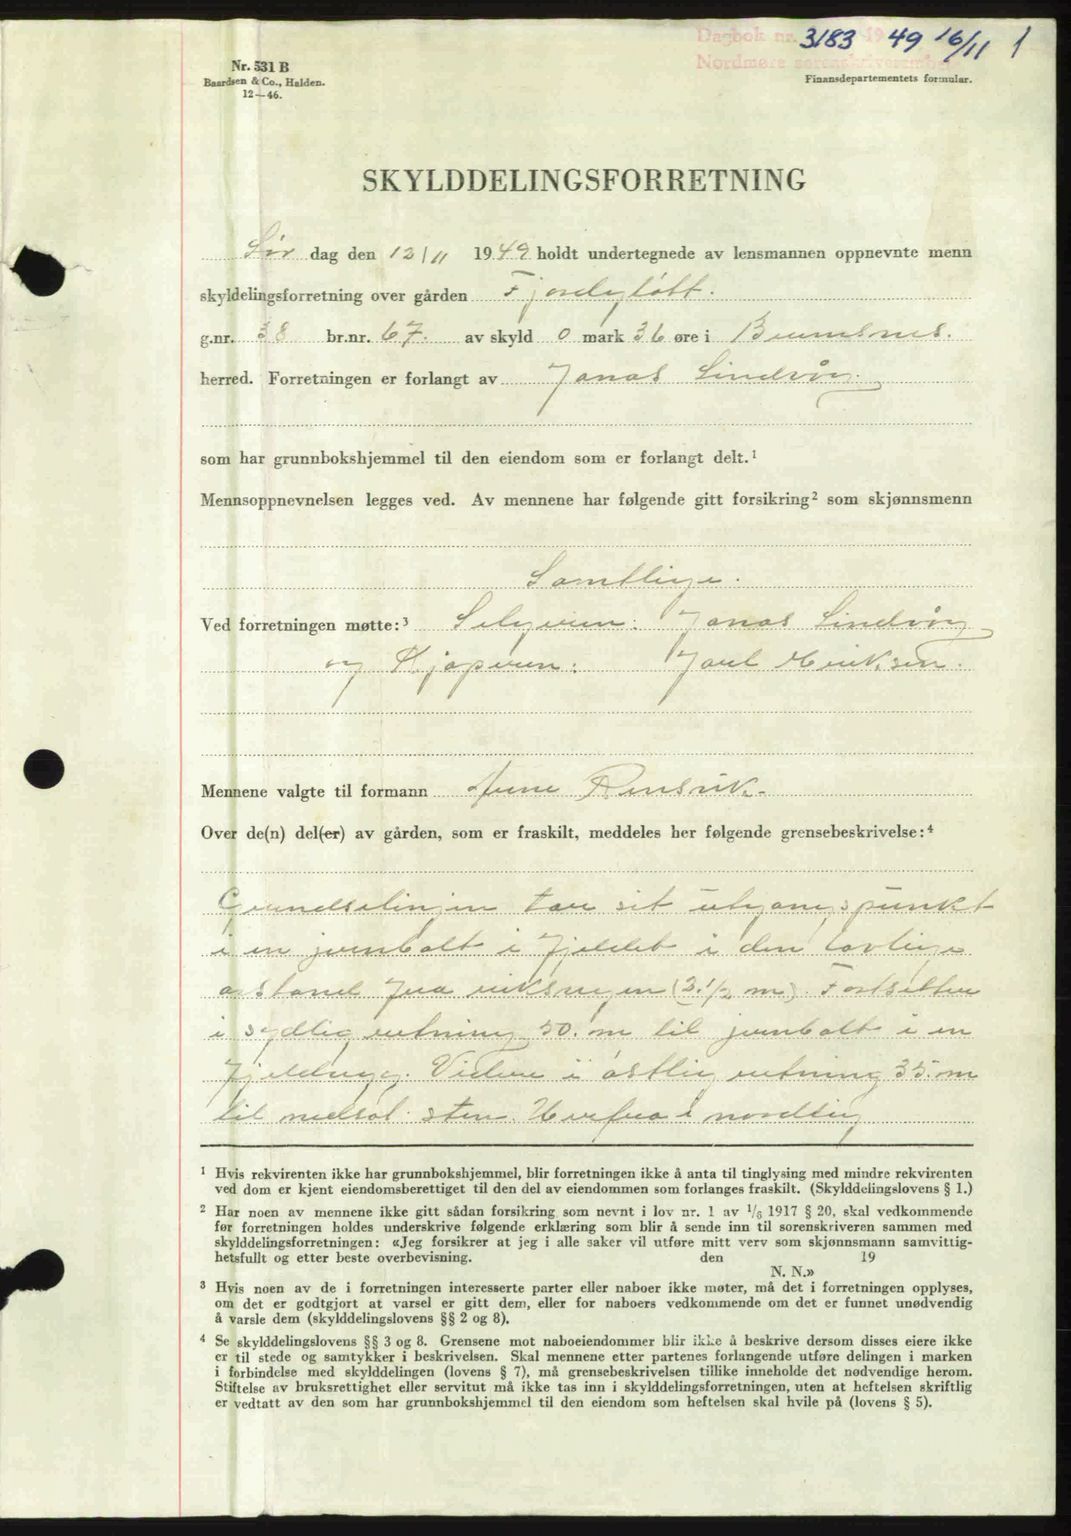 Dagbok nr. 3183 1949 16/11 1
Nordmøre sorenskriverembe
Nr. 531 B
Baardsen & Co., Halden.
12—46.
Finansdepartementets formular.
SKYLDDELINGSFORRETNING
Lør dag den 12/11 1949 holdt undertegnede av lensmannen oppnevnte menn
skyldelingsforretning over gården
g.nr. 38 br.nr. 67. av skyld 0 mark 36 øre i Bremsnes.
herred. Forretningen er forlangt av Jonas Lindvåg.
som har grunnbokshjemmel til den eiendom som er forlangt delt.¹
Mennsoppnevnelsen legges ved. Av mennene har følgende gitt forsikring² som skjønnsmenn
Samtlige.
Ved forretningen møtte:³ Selgeren: Jonas Lindvåg
og Kjøperen: Joel Eriksen.
Mennene valgte til formann Arne Rensvik.
Over de(n) del(er) av gården, som er fraskilt, meddeles her følgende grensebeskrivelse:⁴
Grendselinjen tar sit utgangspunkt
i en jernbolt i Fjeldet i den lovlige
avstand fra riksveien (2.1/2 m). Fortsetter
i sydlig retning 50. m til jernbolt i en
Fjeldrygg. Videre i østlig retning 35. m
til nedsat sten. Herfra i nordlig
¹ Hvis rekvirenten ikke har grunnbokshjemmel, blir forretningen ikke å anta til tinglysing med mindre rekvirenten
ved dom er kjent eiendomsberettiget til den del av eiendommen som forlanges fraskilt. (Skylddelingslovens § 1.)
² Har noen av mennene ikke gitt sådan forsikring som nevnt i lov nr. 1 av 1/6 1917 § 20, skal vedkommende
før forretningen holdes underskrive følgende erklæring som blir å sende inn til sorenskriveren sammen med
skylddelingsforretningen: «Jeg forsikrer at jeg i alle saker vil utføre mitt verv som skjønnsmann samvittig-
hetsfullt og etter beste overbevisning. den 19
N. N.»
³ Hvis noen av de i forretningen interesserte parter eller naboer ikke møter, må det i forretningen opplyses,
om det er godtgjort at varsel er gitt dem, eller for naboers vedkommende om det er funnet unødvendig
å varsle dem (skylddelingslovens §§ 2 og 8).
⁴ Se skylddelingslovens §§ 3 og 8. Grensene mot naboeiendommer blir ikke å beskrive dersom disses eiere ikke
er til stede og samtykker i beskrivelsen. Skal mennene etter partenes forlangende utføre delingen i marken
i forbindelse med skylddelingen (lovens § 7), må grensebeskrivelsen tillike inneholde det nødvendige herom.
Stiftelse av bruksrettighet eller servitut må ikke tas inn i skylddelingsforretningen, uten at heftelsen skriftlig
er vedtatt av den som har grunnbokshjemmel til den eiendom som heftelsen skal hvile på (lovens § 5).